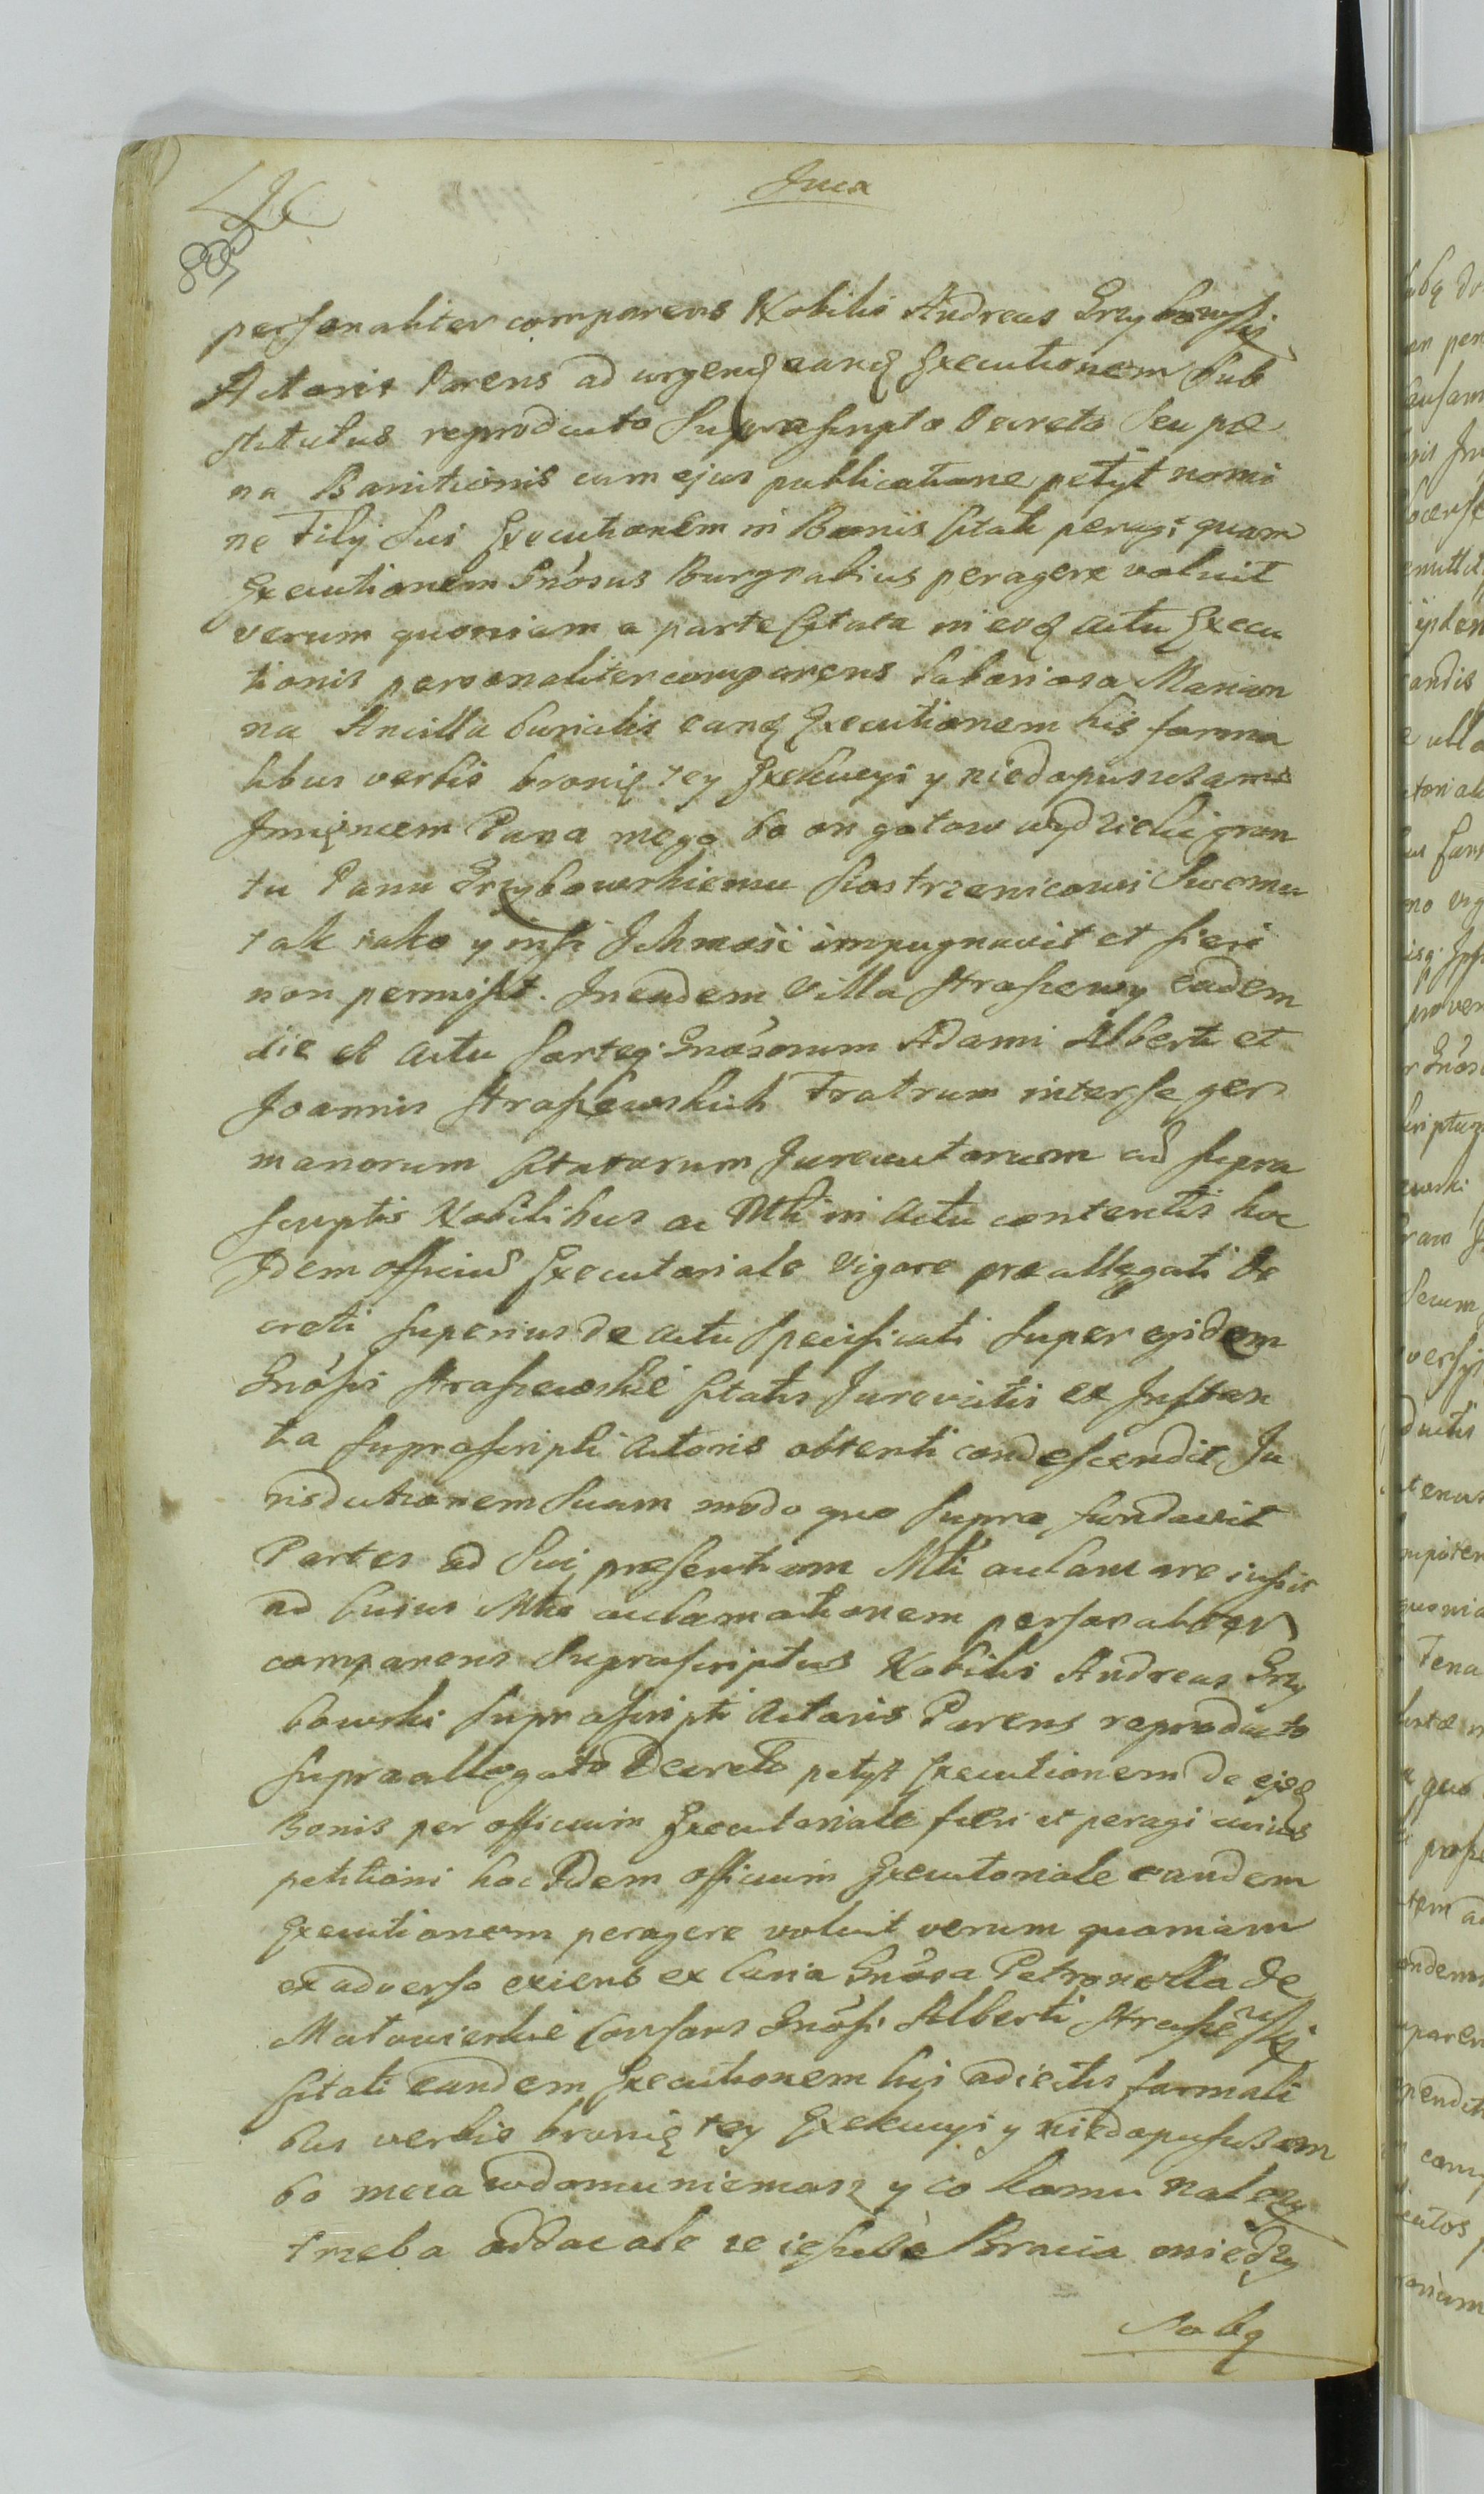 Juca
personaliter comparens Nobilis Andreas Grzybowsky
Actoris Parens ad urgend eand Executionem Sub
stitutus reproducto Suprascripto Decreto Seu pæ
na Banitionis cum ejus publicatione petyt nomi
ne Filij Sui Executionem in Bonis Citati peragi quam
Executionem Gnõsus Burgrabius peragere voluit
verum quoniam a parte Citata in eod Actu Execu
tionis personaliter comparens Laboriosa Marian
na Ancilla Curialis eand Executionem his forma
libus verbis bronię tey Exekucyi y niedopuszczam
Jmięniem Pana mego bo on gotow wydzielic grun
tu Panu Grzybowskiemu Siostrzenicowi Swemu
tak iako y insi Ichmosć impugnavit et fieri
non permisit. In eadem Villa Straszewy eadem
die et Actu Sorteq Gnõsorum Adami Alberti et
Joannis Straszewskich Fratrum inter se ger
manorum Citatorum Jurevictorum ad Supra
Scriptis Nobilibus ac Mtli in Actu contentis hoc
Idem officiũ Executoriale Vigore præallegati De
creti Superius de actu Specificati Super ejsdem
Gnõsis Straszewskie Citatis Jurevictis ex Instan
tia Suprascripti Actoris obtenti condescendit, Ju
risdictionem Suam modo quo Supra fundavit
Partes ad Sui præsentiam Mtli acclamare iussit
ad Cuius Mtlis acclamationem personaliter
comparens Suprascriptus Nobilis Andreas Grzy
bowski Suprascripti Actoris Parens reproducto
Supraallegato Decreto petyt Executionem de ejsd
Bonis per officium Executoriale fieri et peragi cuius
petitioni hoc Idem officium Executoriale eandem
Executionem peragere voluit verum quoniam
ex adverso exiens ex Curia Gnõsa Petronella de
Consors Gnõsi Alberti Straszewsky
Citati eandem Executionem his adiectis formali
bus verbis bronię tey Exekucyi y niedopuszczam
bo meza wdomu niemasz y co komu nalezy
trzeba oddac ale ze ieszcze Bracia miedzy
Sobą